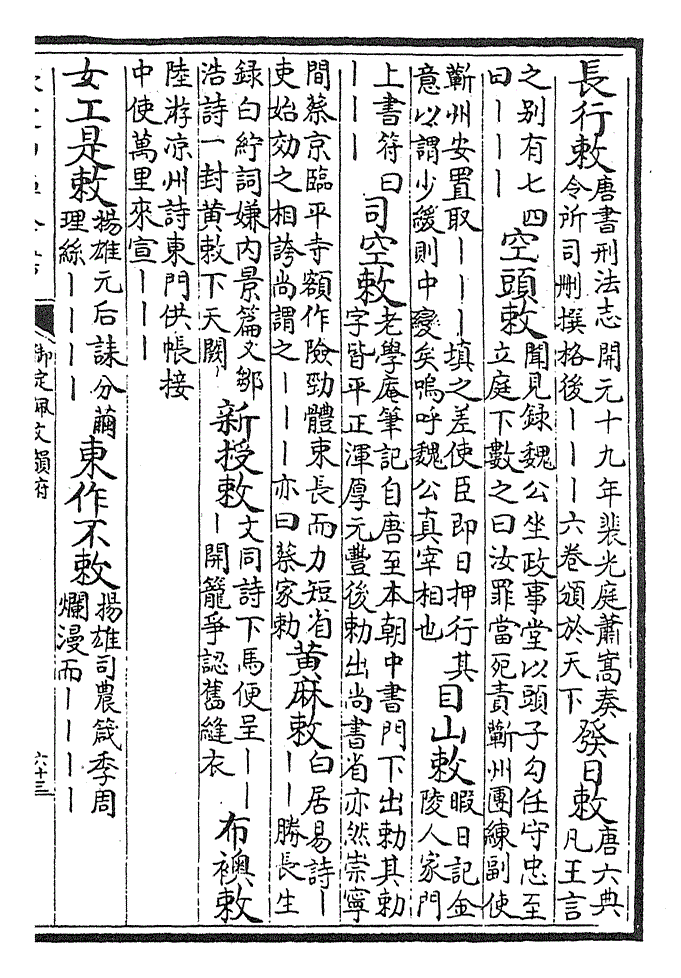 長行敕
唐書刑法志開元十九年裴光庭蕭嵩奏
令所司刪撰格後丨丨丨六卷頒於天下
發日敕
唐六典
凡王言
之別有七四
曰丨丨丨
空頭敕
聞見録魏公坐政事堂以頭子勾任守忠至
立庭下數之曰汝罪當死責蘄州團練副使
蘄州安置取丨丨丨填之差使臣即日押行其
意以謂少緩則中變矣嗚呼魏公真宰相也
目山敕
暇日記金
陵人家門
上書符曰
丨丨丨
司空敕
老學庵筆記自唐至本朝中書門下出勅其勅
字皆平正渾厚元豐後勅出尚書省亦然崇寧
間蔡京臨平寺額作險勁體東長而力短省
吏始効之相誇尚謂之丨丨丨亦曰蔡家勅
黄麻敕
白居易詩丨
丨丨勝長生
録白紵詞嫌内景篇又鄒
浩詩一封黄敕下天闕
新授敕
文同詩下馬便呈丨丨
丨開籠爭認舊縫衣
布襖敕
陸游凉州詩東門供帳接
中使萬里來宣丨丨丨
女工是敕
揚雄元后誄分繭
理絲丨丨丨丨
東作不敕
揚雄司農箴季周
爛漫而丨丨丨丨
御定佩文韻府
六十三